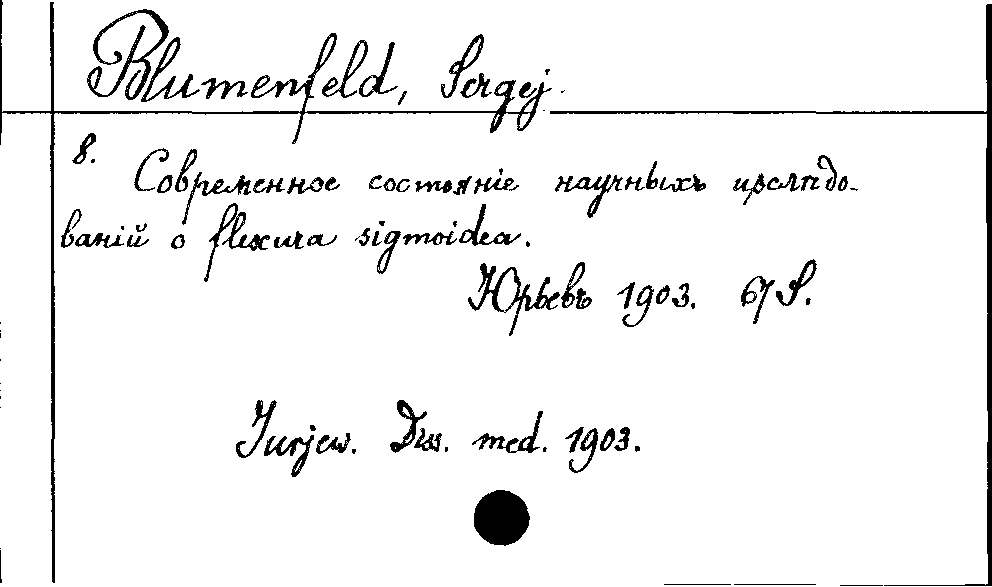 Blumenfeld, Sergej.
8.
Современное состояніе научныхъ изслѣдо-
ваній о flexura sigmoidea.
Юрьевъ 1903. 67 S.
Jurjew. Diss. med. 1903.